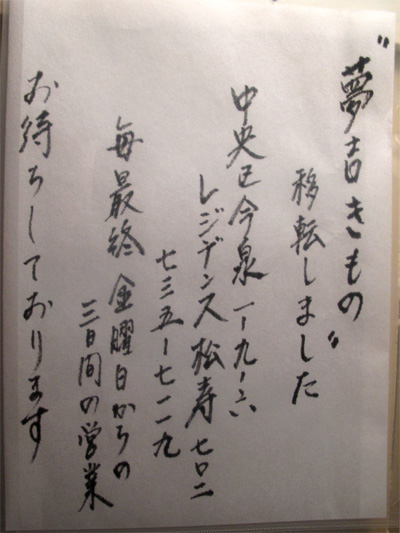 〝夢吉きもの〟
移転しました
中央区今泉一ー九ー六
レジデンス松寿七〇二
七三五ー七一二九
毎最終金曜日からの
三日間の営業
お待ちしております